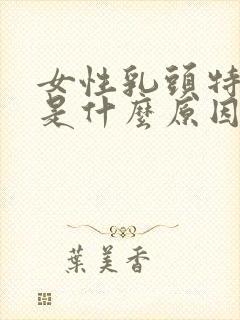 女性乳頭特
是什麼原因
葉美香